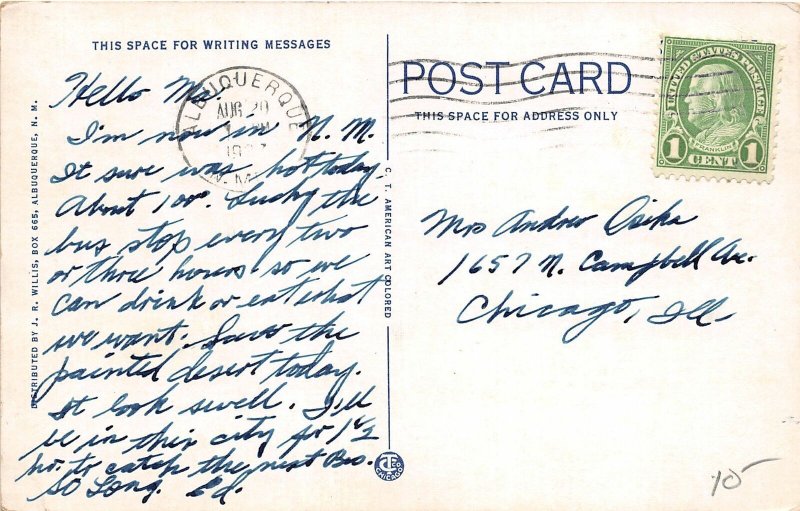 THIS SPACE FOR WRITING MESSAGES
Hello Ma.
I'm now in N. M.
It sure was hot today,
About 100°. Lucky the
bus stop every two
or three hours so we
can drink or eat what
we want. Saw the
painted desert today.
It look swell. I'll
be in this city for 1 1/2
hr. to catch the next Bus.
So Long. Ed.
DISTRIBUTED BY J. R. WILLIS, BOX 665, ALBUQUERQUE, N. M.
C. T. AMERICAN ART COLORED
CHICAGO
ALBUQUERQUE
AUG 20
N. MEX
POST CARD
THIS SPACE FOR ADDRESS ONLY
UNITED STATES POSTAGE
FRANKLIN
1 CENT 1
Mrs Andrew Osika
1657 N. Campbell Ave.
Chicago, Ill
10